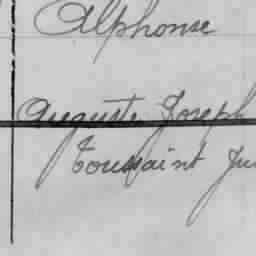 Alphonse
Auguste Joseph
Toussaint